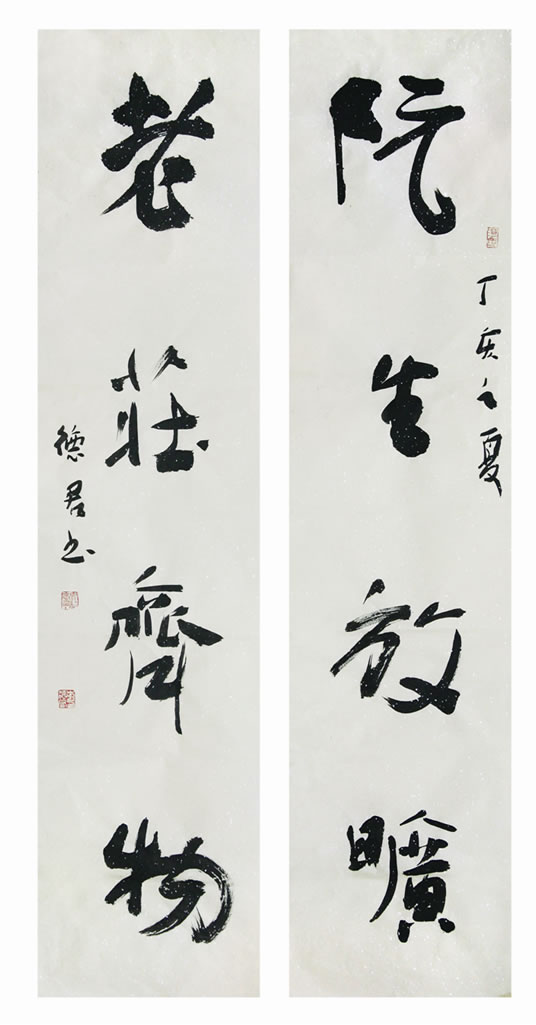 阮生放曠
丁亥之夏
老莊齊物
德君书